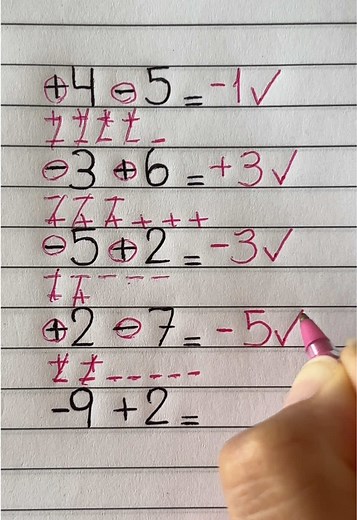 +4 - 5 = -1 ✓
-3 +6 = +3 ✓
-5 +2 = -3 ✓
+2 - 7 = -5 ✓
-9 +2 =